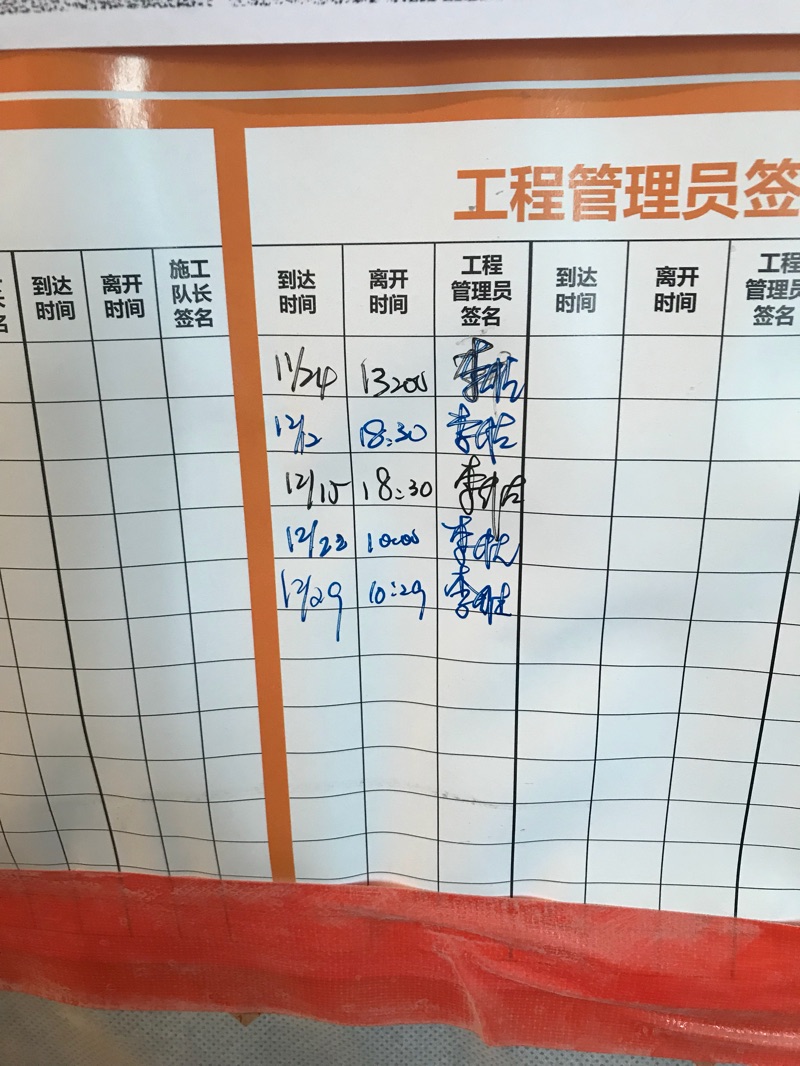 工程管理员签
到达时间 离开时间 施工队长签名 到达时间 离开时间 工程管理员签名 到达时间 离开时间 工程管理员签名
11/24 13:00
12/2 18:30
12/15 18:30
12/23 10:00
12/29 10:29